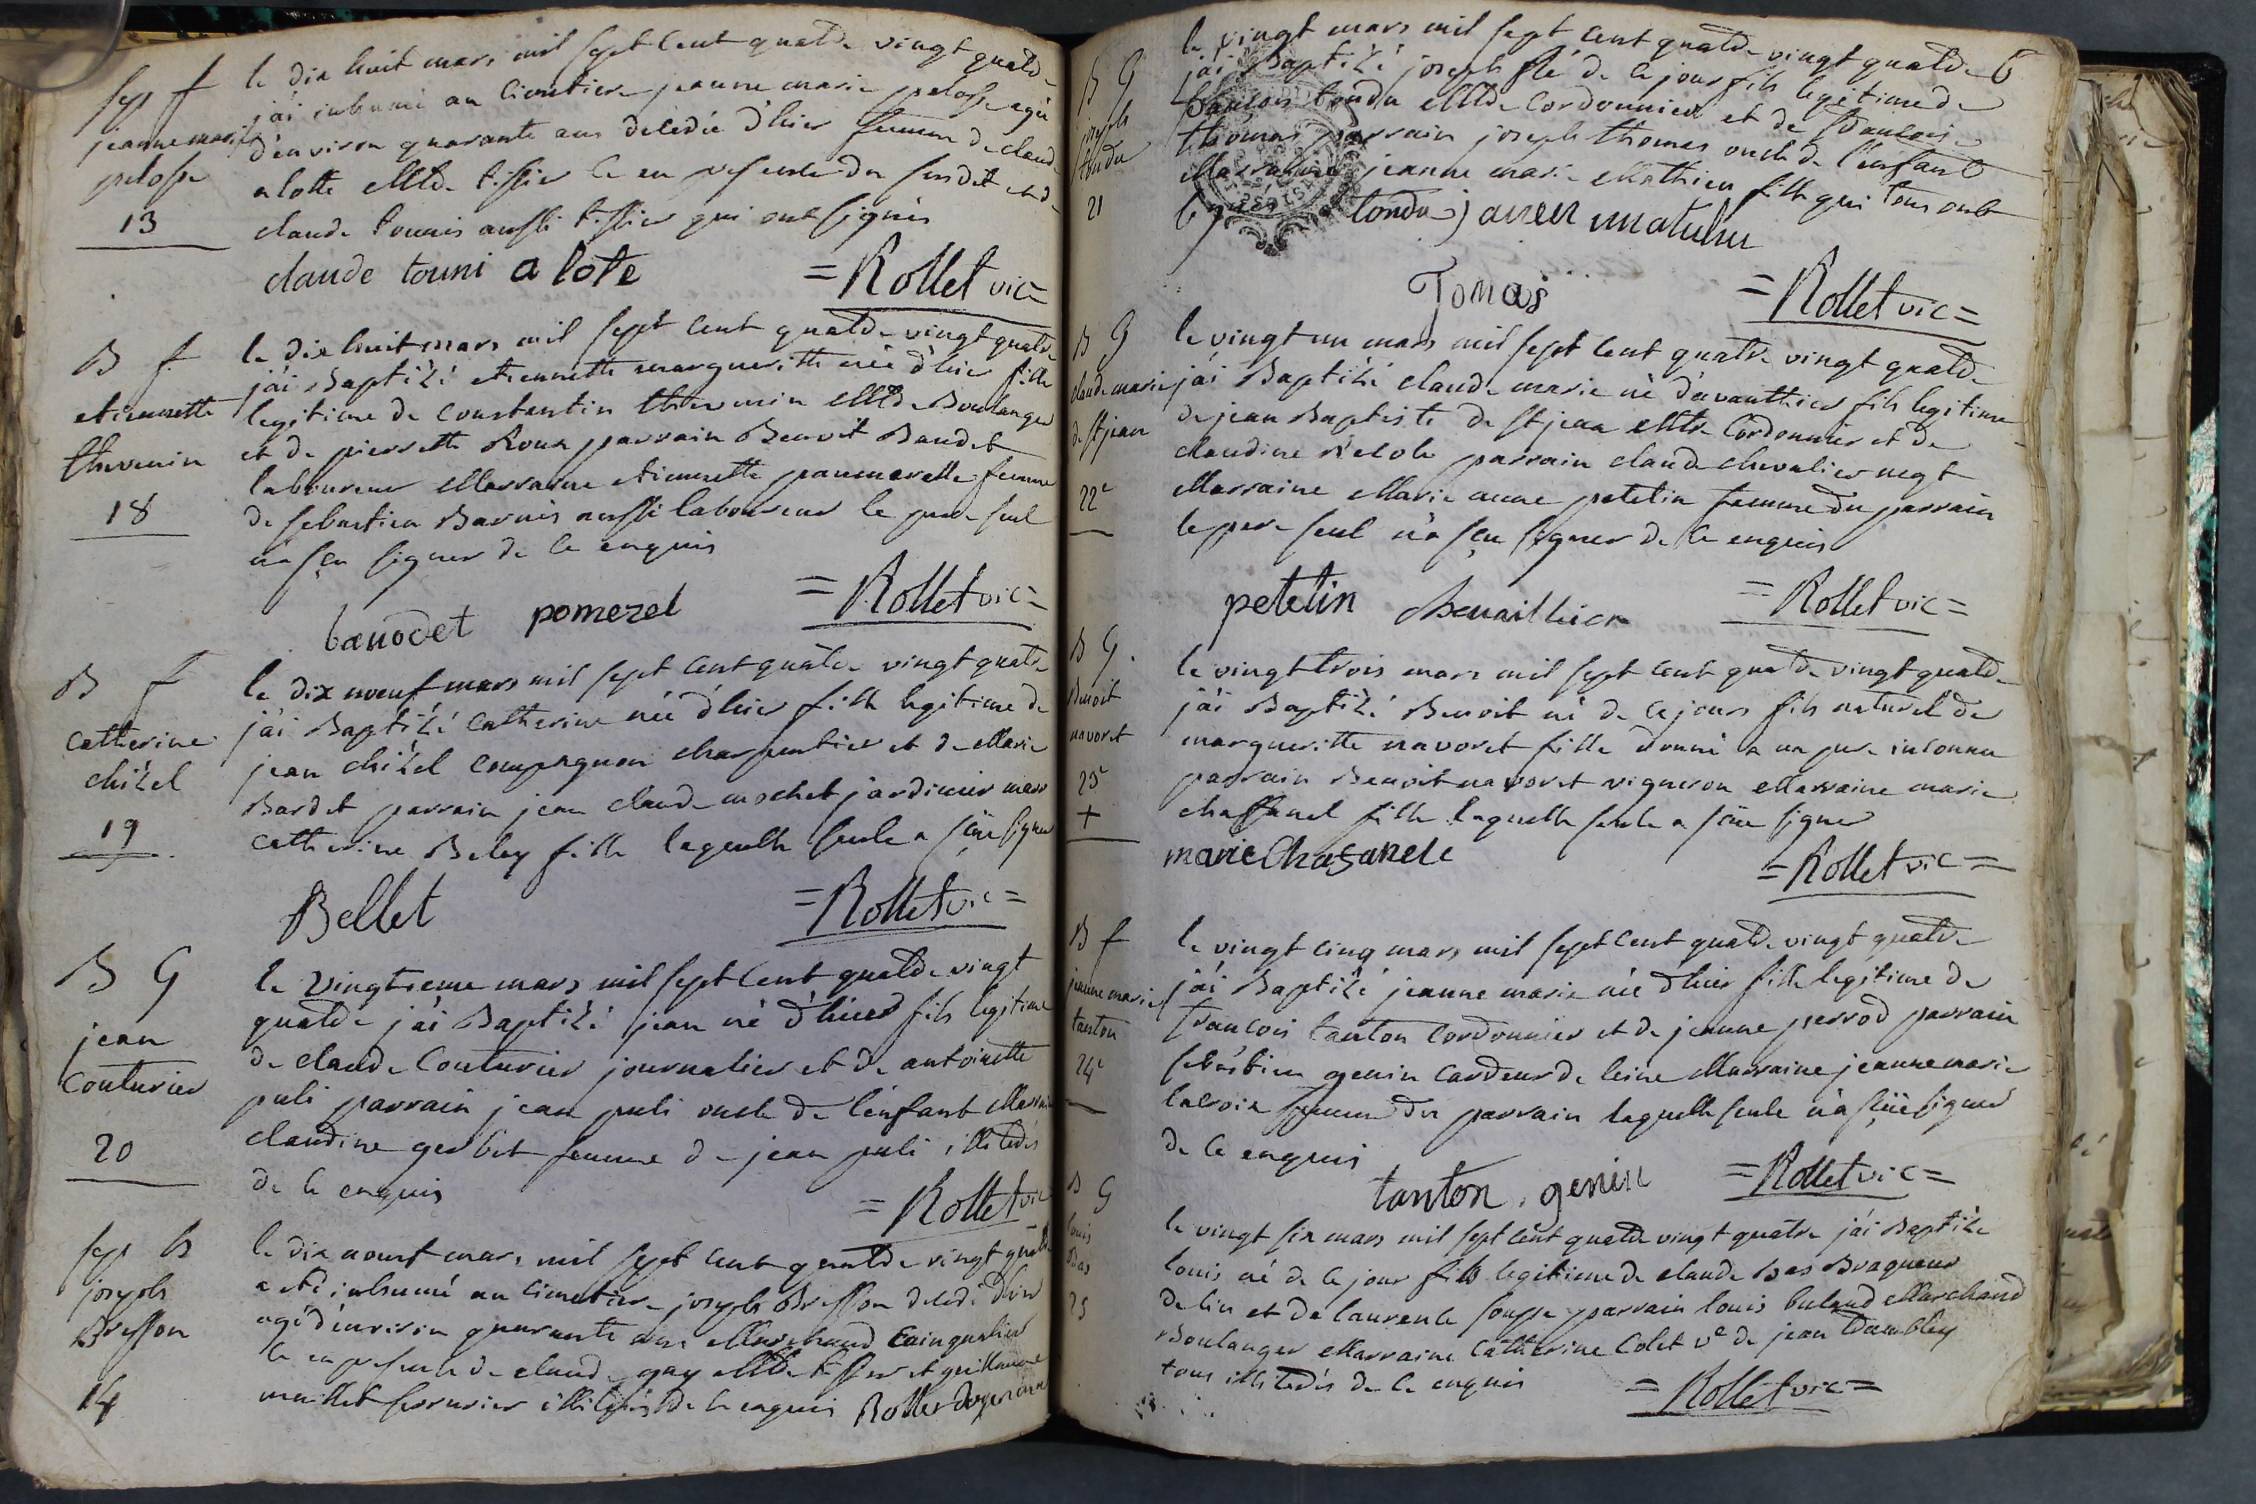 sep f
jeanne marie
pelosse
13
le dix huit mars mil sept cent quatre vingt quatre
j'ai inhumé au cimetiere jeanne marie pelosse agée
d'environ quarante ans décédée d'hier femme de claude
alotte Mtre tissier ce en presence du susdit et de
claude tounis aussi tissier qui ont signés
claude touni a lote =Rollet vic=
B f
etiennette
thevenin
18
le dix huit mars mil sept cent quatre vingt quatre
j'ai Baptizé etiennette margueritte née d'hier fille
legitime de constantin thevenin Mtre Boulanger
et de pierrette Roux parrain Benoit Baudet
laboureur Marraine etiennette paumerelle femme
de sebastien Barnis aussi laboureur le pere seul
n'a sçu signer de ce enquis
bauodet pomerel =Rollet vic=
B f
catherine
chizel
19
le dix noeuf mars mil sept cent quatre vingt quatre
j'ai Baptizé catherine née d'hier fille legitime de
jean chizel compagnon charpentier et de Marie
Bardet parrain jean claude mochet jardinier marr
catherine Beley fille laquelle seule a sçüe signer
Bellet =Rollet vic=
B G
jean
couturier
20
le vingtieme mars mil sept cent quatre vingt
quatre j'ai Baptizé jean né d'hier fils legitime
de claude couturier journalier et de antoinette
puli parrain jean puli oncle de l'enfant Marraine
claudine gerbet femme de jean puli illiterés
de ce enquis
=Rollet vic
sep G
joseph
Bresson
14
le dix noeuf mars mil sept cent quatre vingt quatre
a eté inhumé au cimetiere joseph Bresson décédé d'hier
agé d'environ quarante ans Marchand cainqualier
ce en presence de claude gay Mtre tissier et guillaume
maillet serrurier illiterés de ce enquis Rollet
6
B G
joseph
tondu
21
le vingt mars mil sept cent quatre vingt quatre
j'ai Baptizé joseph né de ce jour fils legitime de
françois tondu Mtre cordonnier et de françoise
thomas parrain joseph thomas oncle de l'enfant
Marraine jeanne marie Mathieu fille qui tous ont
signés tondu matuhu
Tomas =Rollet vic=
B G
claude marie
de st jean
22e
le vingt un mars mil sept cent quatre vingt quatre
j'ai Baptizé claude marie né d'avanthier fils legitime
de jean Baptiste de st jean Mtre Cordonnier et de
claudine récole parrain claude chevalier negt
Marraine Marie anne petetin femme du parrain
le pere seul n'a sçu signer de ce enquis
petetin chevaillier =Rollet vic=
B G
Benoit
navoret
23e
+
le vingt trois mars mil sept cent quatre vingt quatre
j'ai Baptizé Benoit né de ce jours fils naturel de
margueritte navoret fille donné a un pere inconnu
parrain Benoit navoret vigneron Marraine marie
chassanel fille laquelle seule a sçüe signer
marie Chasanele =Rollet vic=
B f
jeanne marie
tanton
24e
le vingt cinq mars mil sept cent quatre vingt quatre
j'ai Baptizé jeanne marie née d'hier fille legitime de
françois tanton cordonnier et de jeanne perrod parrain
sebastien genin cardeur de leine Marraine jeanne marie
lacroix femme du parrain laquelle seule n'a sçüe signer
de ce enquis
tanton genin =Rollet vic=
B G
louis
Bas
25
le vingt six mars mil sept cent quatre vingt quatre j'ai Baptizé
louis né de ce jour fils legitime de claude Bas Braqueur
de lin et de laurence parrain louis buland Marchand
Boulanger Marraine catherine Colet ve de jean
tous illiterés de ce enquis
=Rollet vic=